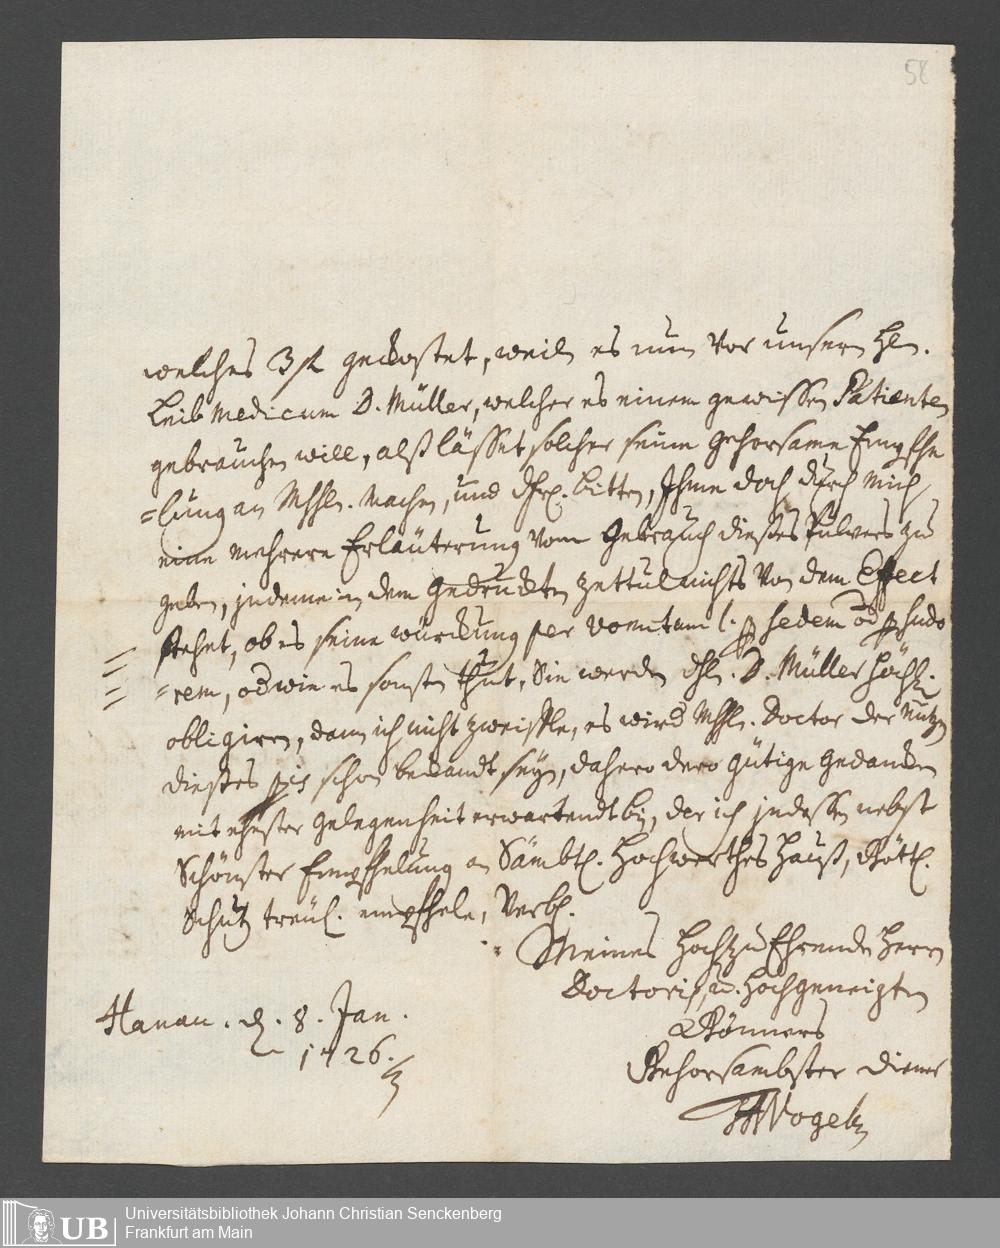 58
welches 3 fl gekostet, weil es nun vor unsern Hln.
Leib Medicum D. Müller, welcher es einem gewissen Patienten
gebrauchen will, alß lässet solcher seine gehorsame Empfhe
=lung an MhhH. machen, und bitten, Ihme doch durch mich
eine mehrere Erläuterung vom Gebrauch dießes Pulvers zu
geben, indeme in dem gedruckten Zettul nichts von dem Effect
stehet, ob es seine würckung per vomitum l. p sedem od p sudo
=rem, od wie es sonsten thut, Sie werden D. Müller höchl.
obligiren, dann ich nicht zweiffle, es wird Doctor der Nutzen
dießes schon bekandt seyn, dahero dero gütige gedancken
mit ehester gelegenheit erwartendt bin, der ich indessen nebst
Schönster Empfhelung an Sämbtl. Hochwerthes Hauß, Göttl.
Schutz treül. empfhele, Verbl.
Meines Hochzu Ehrenden Herrn
Doctoris, u. Hochgeneigten
Gönners
Gehorsambster Diener
Vogel
Hanau. d. 8. Jan.
1726.
UB Universitätsbibliothek Johann Christian Senckenberg
Frankfurt am Main